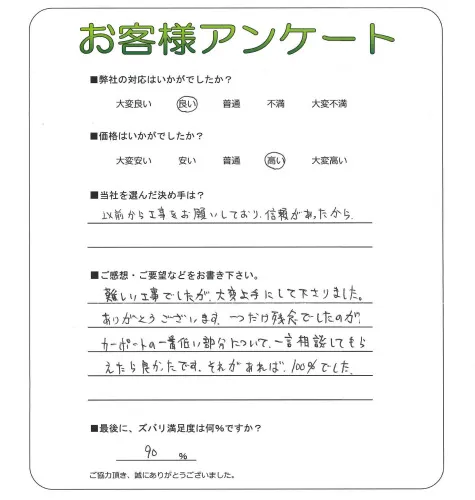 お客様アンケート
■弊社の対応はいかがでしたか？
大変良い 良い 普通 不満 大変不満
■価格はいかがでしたか？
大変安い 安い 普通 高い 大変高い
■当社を選んだ決め手は？
以前から工事をお願いしており、信頼があったから、
■ご感想・ご要望などをお書き下さい。
難しい工事でしたが、大変上手にして下さりました。
ありがとうございます。一つだけ残念でしたのが、
カーポートの一番低い部分について、一言相談してもら
えたら良かったです。それがあれば、100%でした。
■最後に、ズバリ満足度は何％ですか？
90 %
ご協力頂き、誠にありがとうございました。